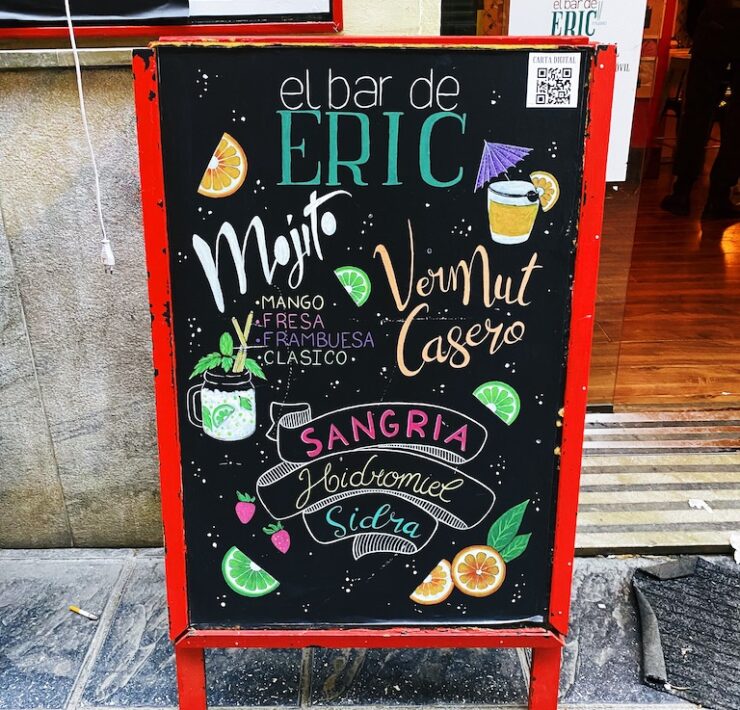 el bar de
ERIC
CARTA DIGITAL
el bar de
ERIC
Mojito
MANGO
FRESA
FRAMBUESA
CLASICO
VerMut
Casero
SANGRIA
Hidromiel
Sidra